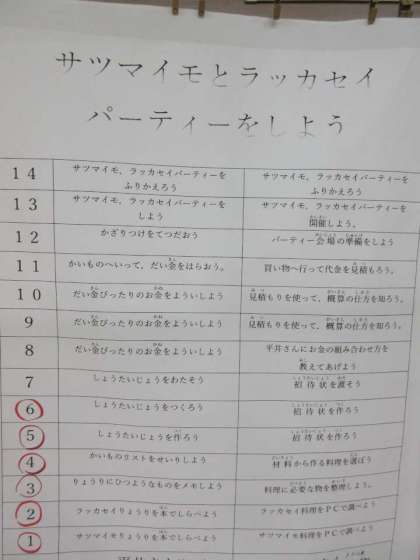 サツマイモとラッカセイ
パーティーをしよう
14 サツマイモ、ラッカセイパーティーを サツマイモ、ラッカセイパーティーを
ふりかえろう ふりかえろう
13 サツマイモ、ラッカセイパーティーを サツマイモ、ラッカセイパーティーを
しよう 開催しよう。
12 かざりつけをてつだおう パーティー会場の準備をしよう
11 かいものへいって、だい金をはらおう。 買い物へ行って代金を見積もろう。
10 だい金ぴったりのお金をよういしよう 見積もりを使って、概算の仕方を知ろう。
9 だい金ぴったりのお金をよういしよう 見積もりを使って、概算の仕方を知ろう。
8 だい金ぴったりのお金をよういしよう 平井さんにお金の組み合わせ方を
教えてあげよう
7 しょうたいじょうをわたそう 招待状を渡そう
6 しょうたいじょうをつくろう 招待状を作ろう
5 しょうたいじょうを作ろう 招待状を作ろう
4 かいものリストをせいりしよう 材料から作る料理を選ぼう
3 りょうりにひつようなものをメモしよう 料理に必要な物を整理しよう。
2 ラッカセイりょうりを本でしらべよう ラッカセイ料理をPCで調べよう
1 サツマイモりょうりを本でしらべよう サツマイモ料理をPCで調べよう